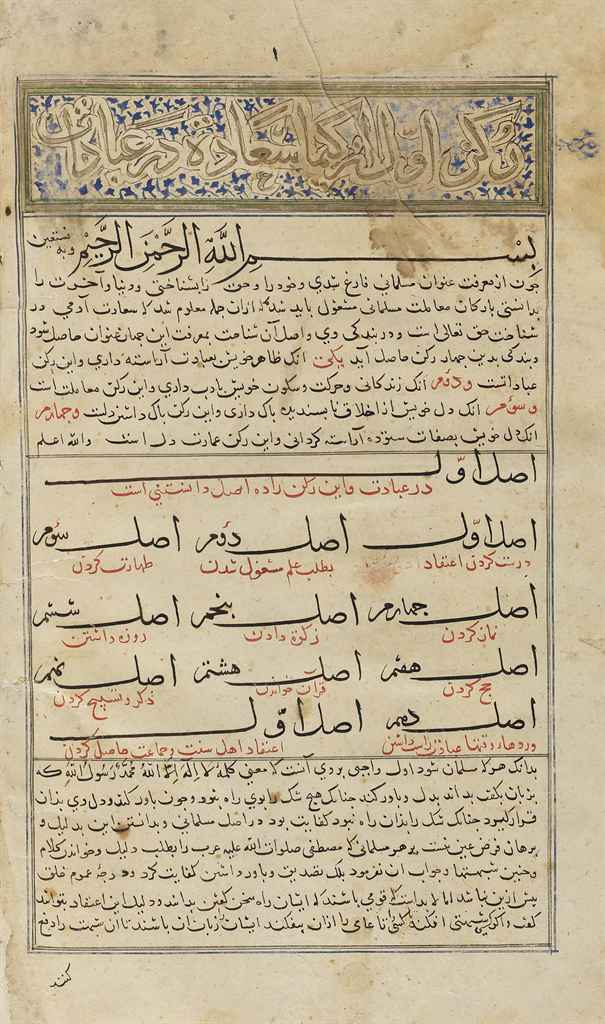 ١
رکن اول از کیمیا سعادة در عبادات
بسم الله الرحمن الرحیم وبه نستعین
چون از معرفت عنوان مسلمانی فارغ شدی و خود را و حق را بشناختی و دنیا و آخرت را
بدانستی بارکان معاملت مسلمانی مشغول باید شد که ازان جمله معلوم شد که سعادت آدمی در
شناخت حق تعالی است و در بندگی وی و اصل آن شناخت بمعرفت این چهار عنوان حاصل شود
و بندگی بدین چهار رکن حاصل آید یکی آنک ظاهر خویش بعبادت آراسته داری و این رکن
عباداتست و دوم آنک زندگانی و حرکت و سکون خویش بادب داری و این رکن معاملت است
و سوم آنک دل خویش از اخلاق ناپسندیده پاک داری و این رکن پاک داشتن دلست و چهارم
آنک دل خویش بصفات ستوده آراسته گردانی و این رکن عمارت دل است والله اعلم
اصل اول
در عبادت و این رکن را ده اصل دانستنی است
اصل اول اصل دوم اصل سوم
درست کردن اعتقاد بطلب علم مشغول شدن طهارت کردن
اصل چهارم اصل پنجم اصل ششم
نماز کردن زکوة دادن روزه داشتن
اصل هفتم اصل هشتم اصل نهم
حج کردن قرآن خواندن ذکر و تسبیح کردن
اصل دهم اصل اول
وردها و وقتها عبادت راست داشتن اعتقاد اهل سنت و جماعت حاصل کردن
بدانک هر که مسلمان شود اول واجبی بر وی آنست که معنی کلمه لا اله الا الله محمد رسول الله که
بزبان بگفت بداند بدل و باور کند چنانک هیچ شک را بوی راه نبود و چون باور کرد و دل وی بدان
قرار گیرد چنانک شک را بدان راه نبود کفایت بود در اصل مسلمانی و بدانستن این بدلیل و
برهان فرض عین نیست بر هر مسلمانی که مصطفی صلوات الله علیه عرب را بطلب دلیل و خواندن کلام
و جستن شبهتها و جواب آن نفرمود بلک بتصدیق و باور داشتن کفایت کرد و درجه عموم خلق
بیش ازین نباشد اما لابداست که قومی باشند که ایشان راه سخن گفتن بدانند و دلیل این اعتقاد بتوانند
گفت و اگر کسی شبهتی افکند تا عامی را ازان بیفکند ایشانرا زبان آن باشد تا آن شبهت را دفع
کنند